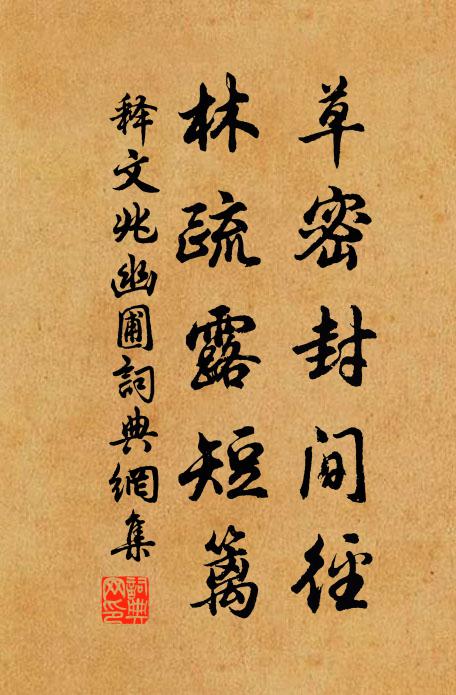 草密封閒徑
林疏露短篱
释文兆幽圃詞典網集
詞典网印